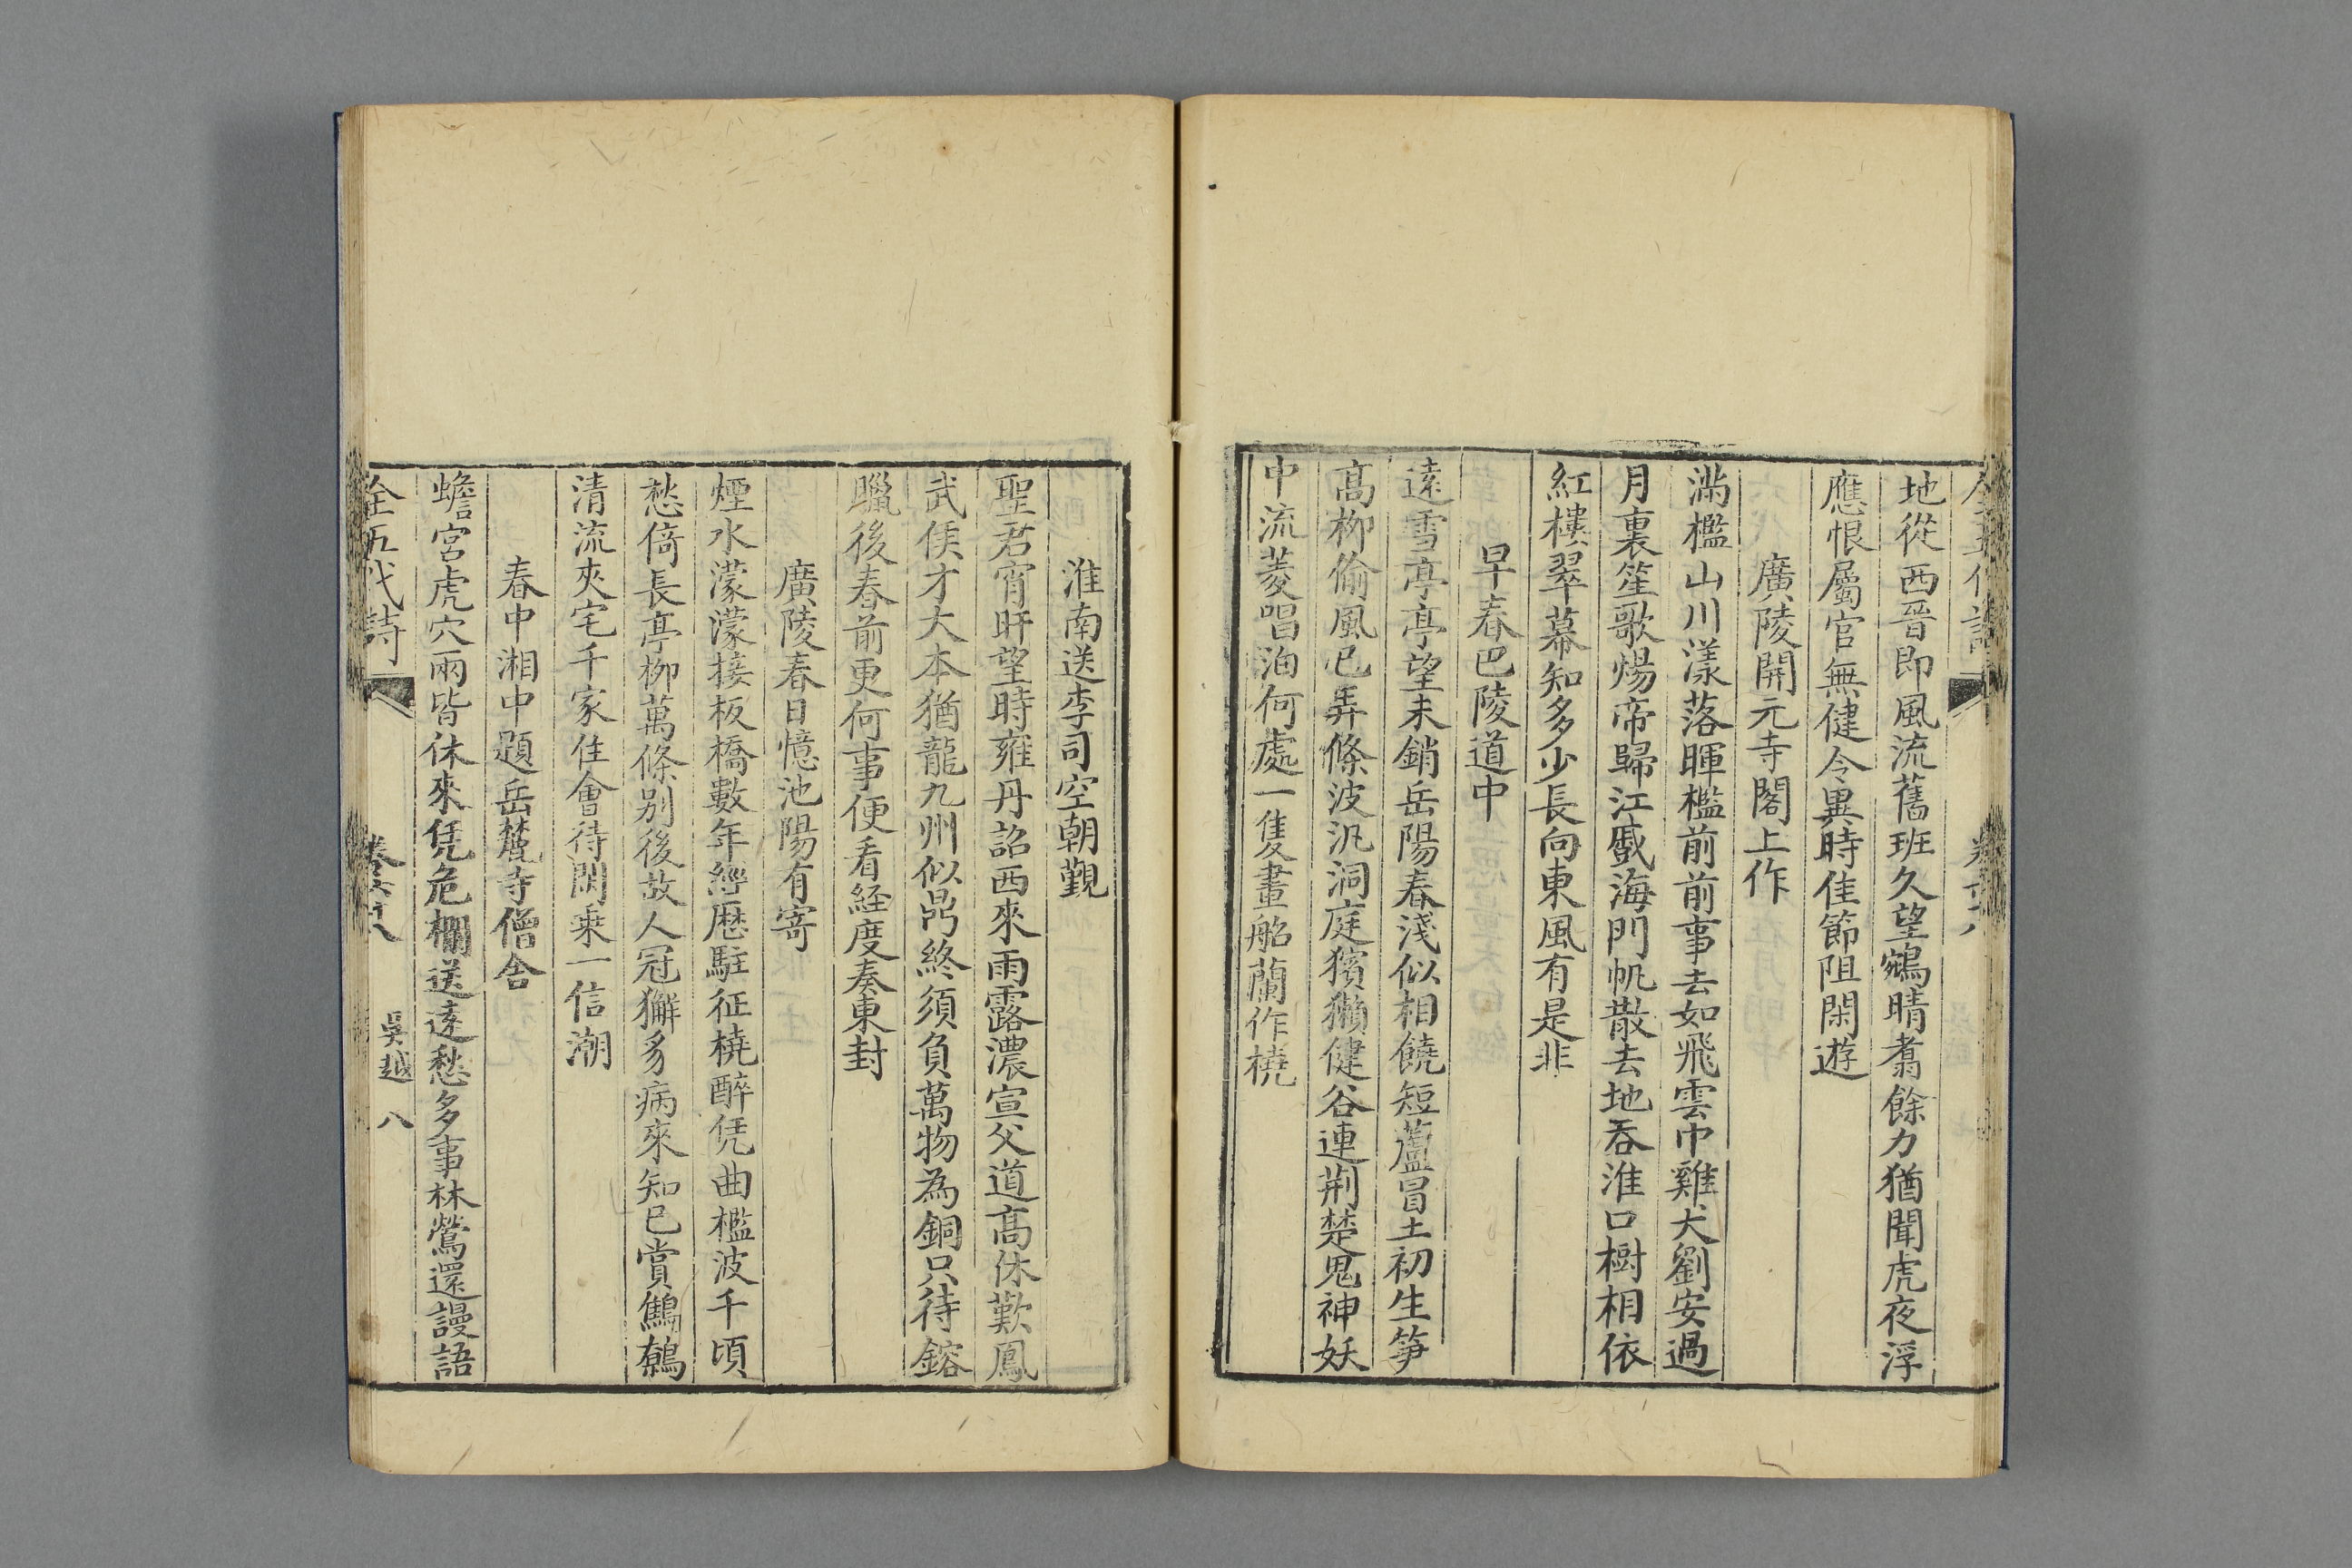 地從西晉即風流舊班久望鵷晴翥餘力猶聞虎夜浮
應恨屬官無健令異時佳節阻閑遊
廣陵開元寺閣上作
滿檻山川漾落暉檻前前事去如飛雲中雞犬劉安過
月裏笙歌煬帝歸江蹙海門帆散去地吞淮口樹相依
紅樓翠幕知多少長向東風有是非
早春巴陵道中
遠雪亭亭望未銷岳陽春淺似相饒短蘆冒土初生笋
高柳偷風已弄條波汎洞庭獱獺健谷連荆楚鬼神妖
中流菱唱泊何處一隻畫船蘭作橈
淮南送李司空朝覲
聖君宵旰望時雍丹詔西來雨露濃宣父道高休歎鳳
武侯才大本猶龍九州似鼎終須負萬物為銅只待鎔
臘後春前更何事便看經度奏東封
廣陵春日憶池陽有寄
煙水濛濛接板橋數年經歷駐征橈醉凭曲檻波千頃
愁倚長亭柳萬條别後故人冠獬豸病來知己賞鷦鷯
清流夾宅千家住會待閑乗一信潮
春中湘中題岳麓寺僧舍
蟾宮虎穴兩皆休來凭危欄送遠愁多事林鶯還謾語
全五代詩 卷六十八 吳越 八